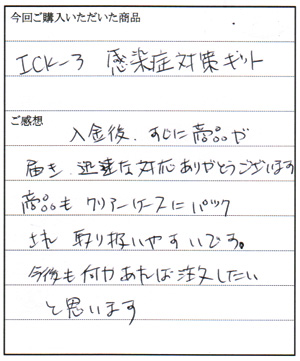 今回ご購入いただいた商品
ICK-3 感染症対策キット
ご感想
入金後、すぐに商品が
届き、迅速な対応ありがとうございます
商品も クリアーケースにパック
され 取り扱いやすいです。
今後も何かあれば注文したい
と思います